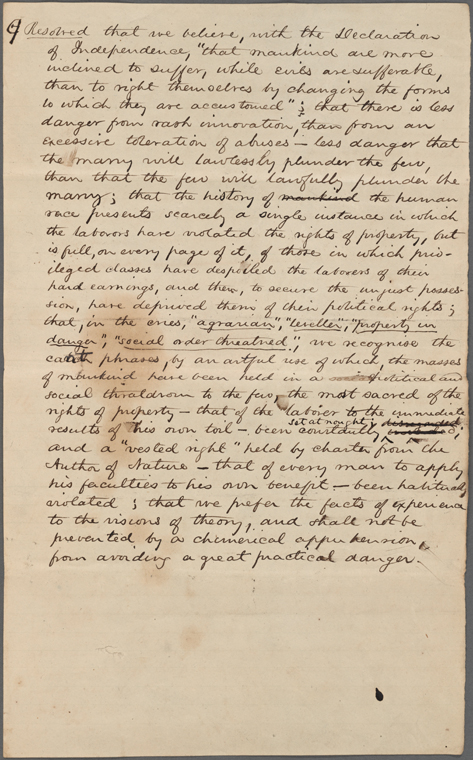 9 Resolved that we believe, with the Declaration
of Independence, "that mankind are more
inclined to suffer, while evils are sufferable,
than to right themselves by changing the forms
to which they are accustomed"; that there is less
danger from rash innovation, than from an
excessive toleration of abuses – less danger that
the many will lawlessly plunder the few,
than that the few will lawfully plunder the
many; that the history of mankind the human
race presents scarcely a single instance in which
the laborers have violated the rights of property, but
is full, on every page of it, of those in which priv-
ileged classes have despoiled the laborers of their
hard earnings, and then, to secure the unjust posses-
sion, have deprived them of their political rights;
that, in the cries, "agrarian", "leveller," "property in
danger", "social order threatned", we recognise the
catch phrases, by an artful use of which, the masses
of mankind have been held in a political and
social thraldrom to the few, the most sacred of the
rights of property – that of the laborer to the immediate
results of his own toil – been constantly set at naught;
and a "vested right" held by charter from the
Author of Nature – that of every man to apply
his faculties to his own benefit – been habitually
violated; that we prefer the facts of experience
to the visions of theory, and shall not be
prevented by a chimerical apprehension,
from avoiding a great practical danger.